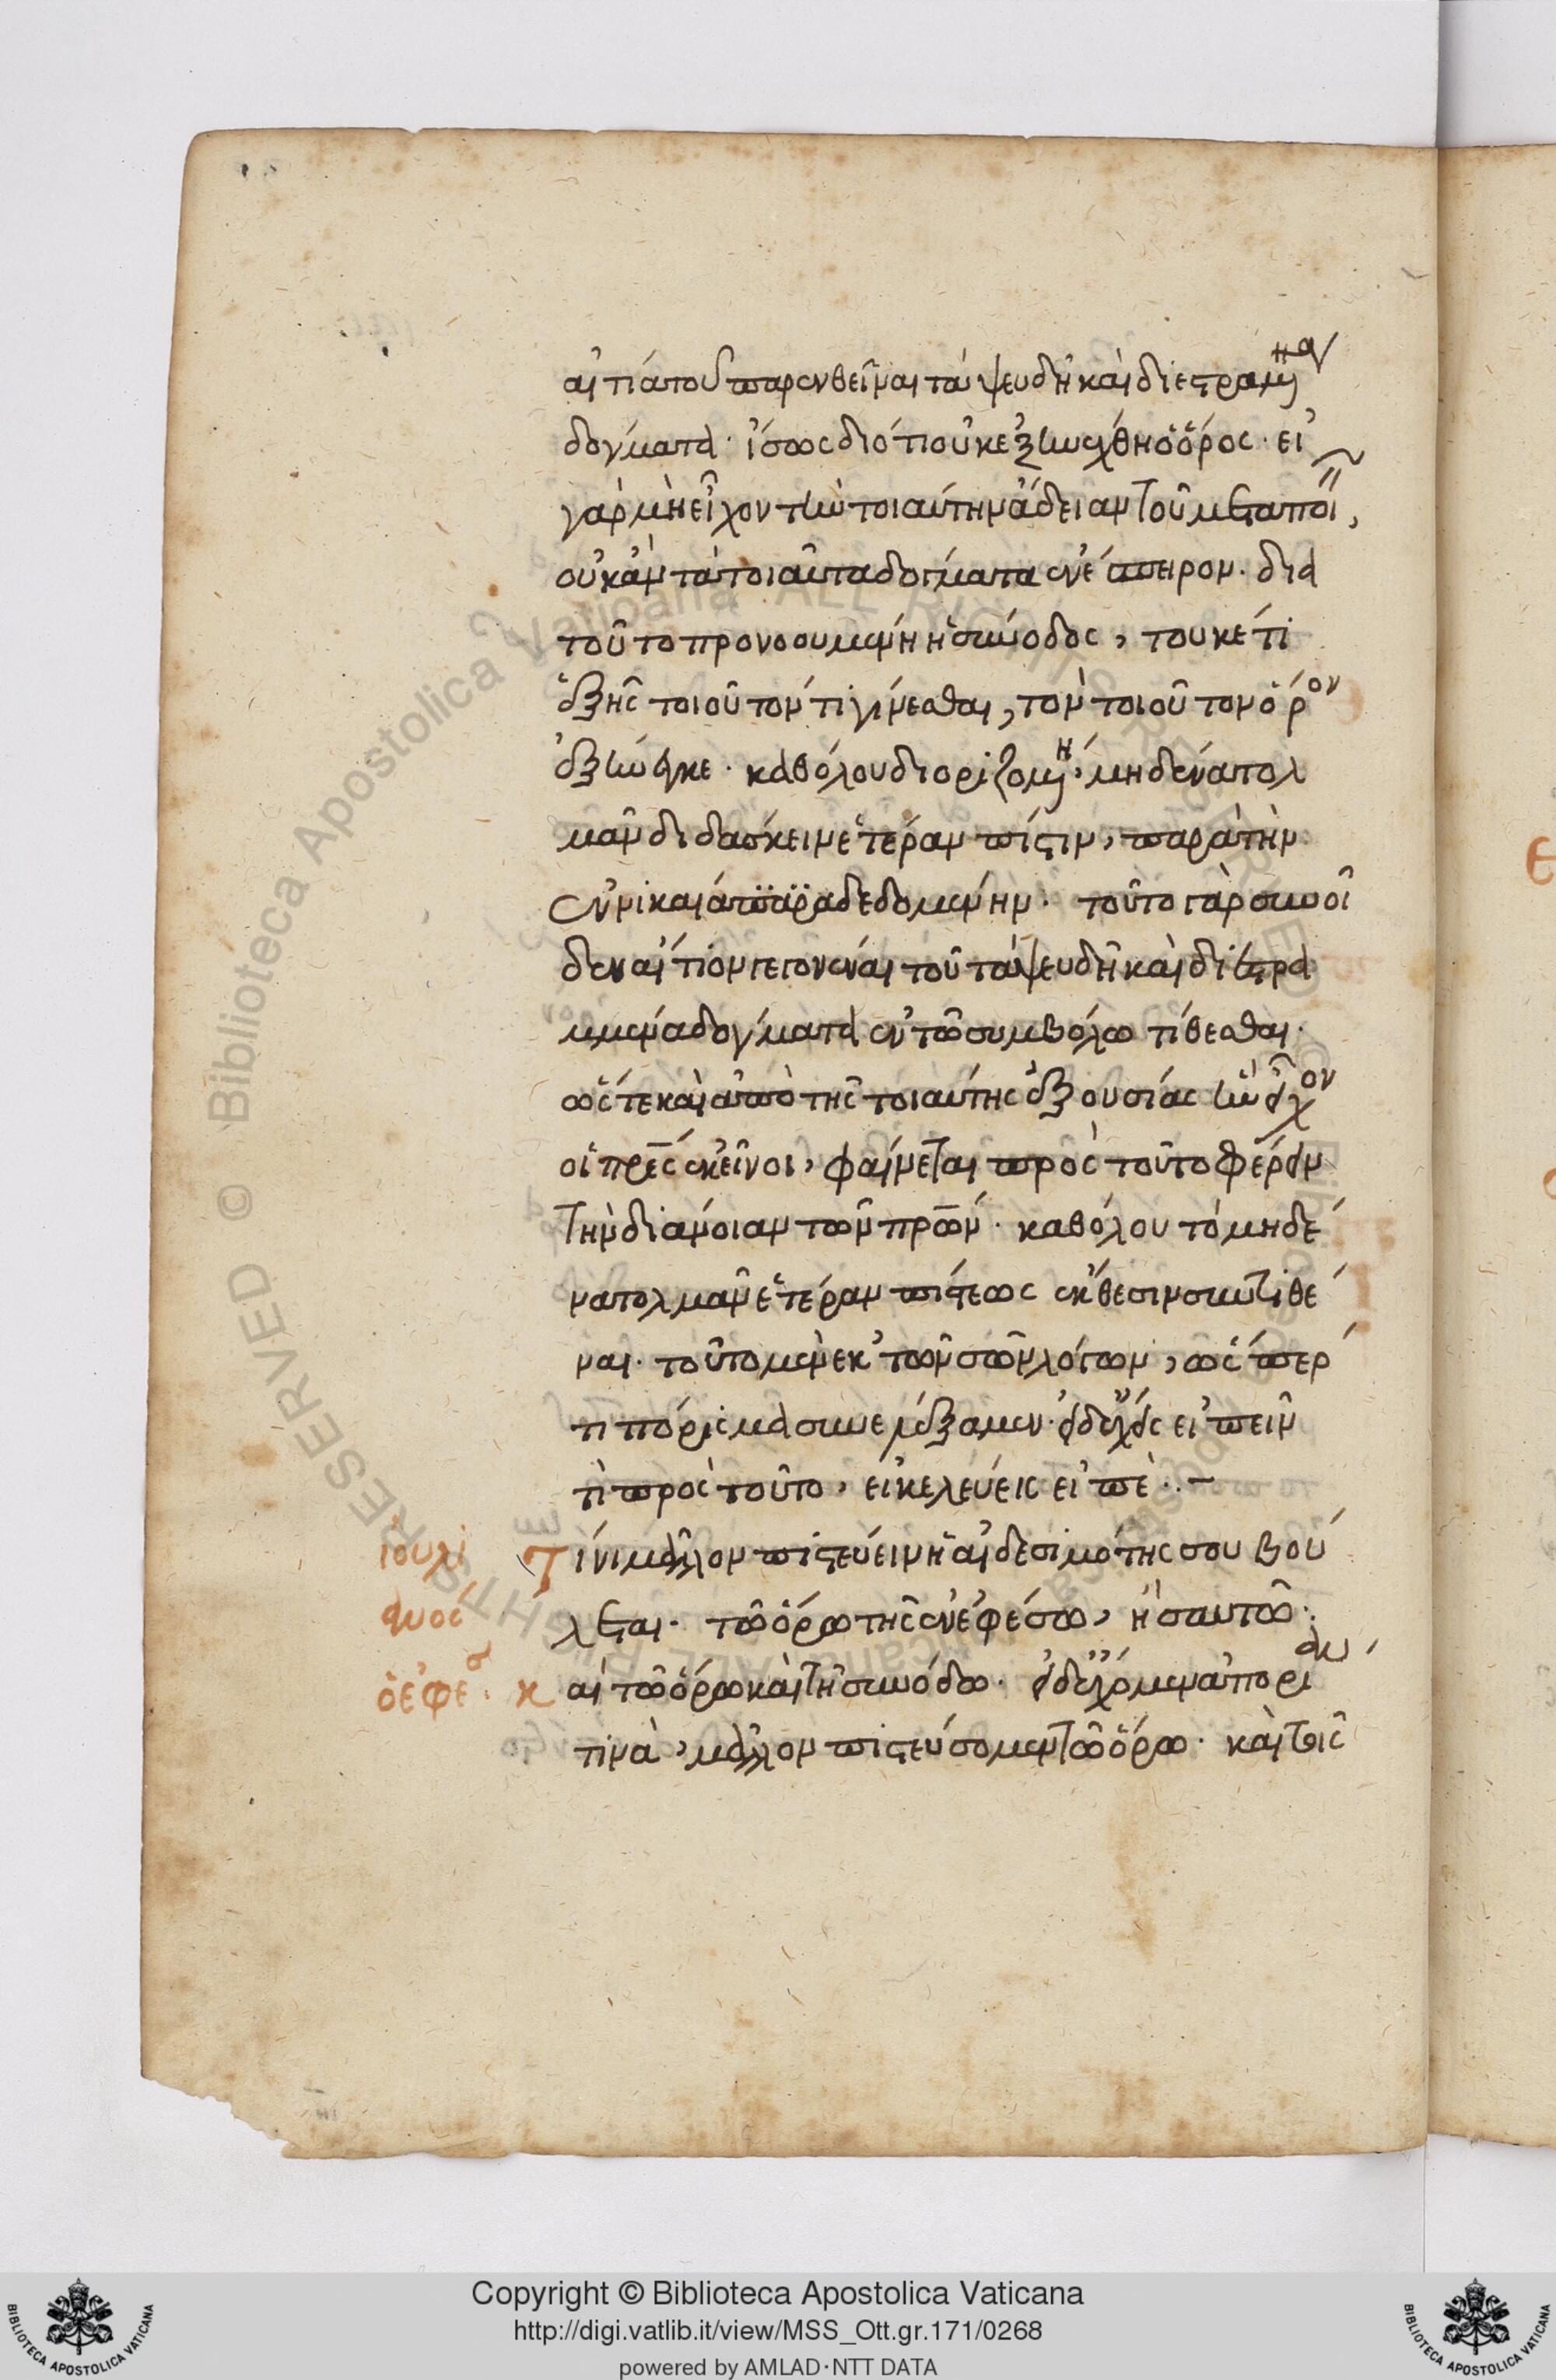 αἰτία τοῦ παρενθεῖναι τὰ ψευδῆ καὶ διεστραμμένα
δόγματα· ἴσως διότι οὐκ ἐξηνέχθη ὁ ὅρος· εἰ
γὰρ μὴ εἶχον τὴν τοιαύτην ἄδειαν τοῦ μεταποιεῖν,
οὐκ ἂν τὰ τοιαῦτα δόγματα ἐνέσπειρον· διὰ
τοῦτο προνοουμένη ἡ σύνοδος, τοῦ κέτι
ἑξῆς τοιοῦτόν τι γίνεσθαι, τὸν τοιοῦτον ὅρον
ἐξήνεγκε· καθόλου διοριζομένη, μηδένα τολ
μᾶν διδάσκειν ἑτέραν πίστιν, παρὰ τὴν
ἐν νικαία παραδεδομένην· τοῦτο γὰρ συνοῖ
δεν αἴτιον γεγονέναι τοῦ τὰ ψευδῆ καὶ διεστρα
μμένα δόγματα ἐν τῶ συμβόλω τίθεσθαι·
ὥστε καὶ ἀπὸ τῆς τοιαύτης ἐξουσίας ἣν εἶχον
οἱ πρες ἐκεῖνοι, φαίνεται πρὸς τοῦτο φέρειν
τὴν διάνοιαν τῶν πρων· καθόλου τὸ μηδέ
να τολμᾶν ἑτέραν πίστεως ἔκθεσιν συντιθέ
ναι· τοῦτο μὲν ἐκ τῶν σῶν λόγων, ὥσπερ
τι πόρισμα συνελέξαμεν· εἰ δὲ ἔχεις εἰπεῖν
τι πρὸς τοῦτο, εἰ κελεύεις εἰπέ··–
ἰουλι Τίνι μᾶλλον πιστεύειν ἡ αἰδεσιμότης σου βού
ανος λεται· τῶ ὅρω τῆς ἐν ἐφέσω, ἢ σαυτῶ·
ὁ ἐφέσ· Καὶ τῶ ὅρω καὶ τῆ συνόδω· εἰ δὲ ἔχομεν ἀπορίαν
τινὰ, μᾶλλον πιστεύσομεν τῶ ὅρω· καὶ τοῖς
Copyright © Biblioteca Apostolica Vaticana
http://digi.vatlib.it/view/MSS_Ott.gr.171/0268
powered by AMLAD·NTT DATA